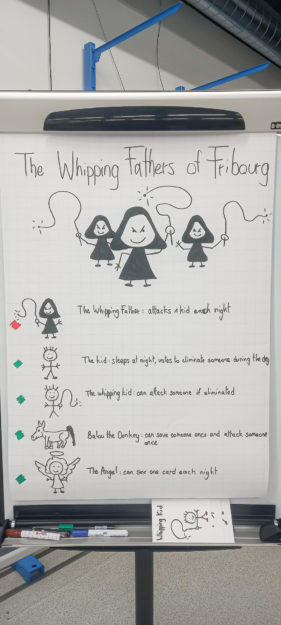 The Whipping Fathers of Fribourg
The Whipping Father: attacks 1 kid each night
The kid: sleeps at night, votes to eliminate someone during the day
The whipping kid: can attack someone if eliminated
Balou the Donkey: can save someone once and attack someone
once
The Angel: can see one card each night
Whipping Kid